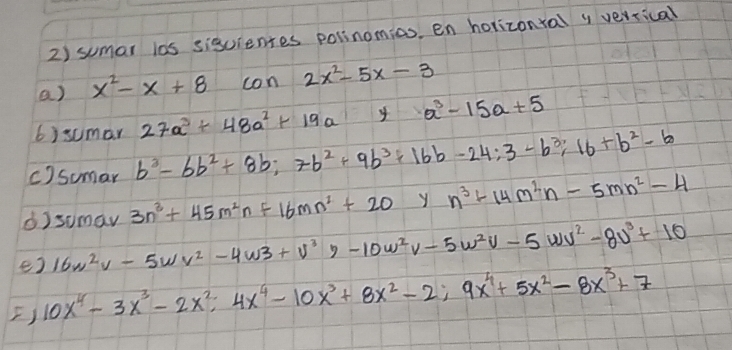 2) sumar los siguientes polinomios. En horizontal y vertical
a) x² - x + 8 con 2x² - 5x - 3
b) sumar 27a³ + 48a² + 19a y a³ - 15a + 5
c) sumar b³ - 6b² + 8b; 7b² + 9b³ + 16b - 24; 3 - b³; 16 + b² - b
d) sumar 3n³ + 45m²n + 16mn² + 20 y n³ + 14m²n - 5mn² - 4
e) 16w²v - 5wv² - 4w3 + v³ y -10w²v - 5w²v - 5wv² - 8v³ + 10
F) 10x⁴ - 3x³ - 2x²; 4x⁴ - 10x³ + 8x² - 2; 9x⁴ + 5x² - 8x³ + 7